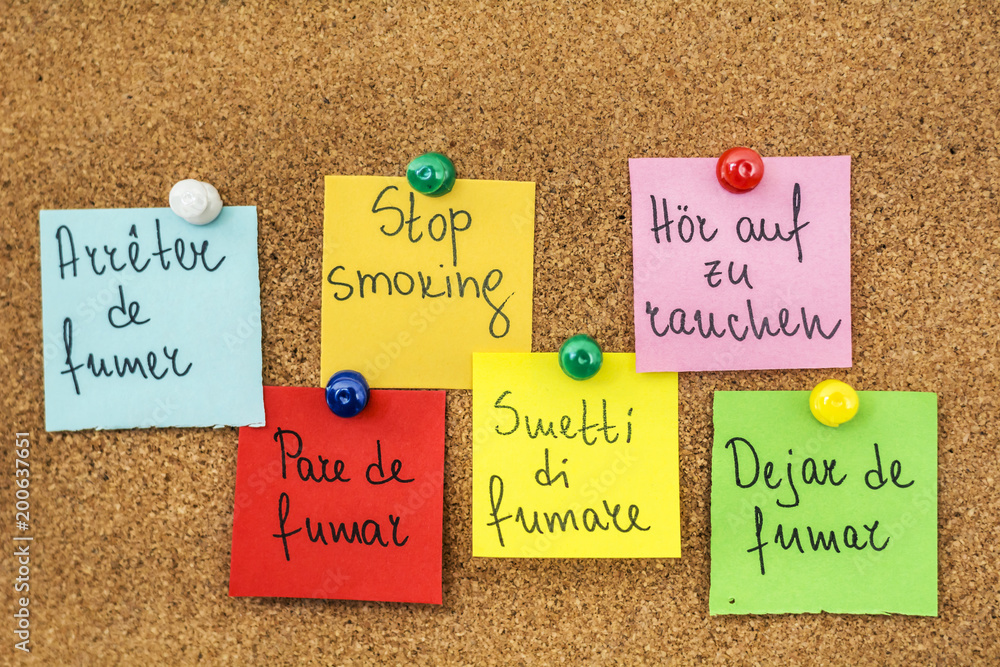 Arrêter
de
fumer
Stop
smoking
Hör auf
zu
rauchen
Pare de
fumar
Smetti
di
fumare
Dejar de
fumar
Adobe Stock | #200637651